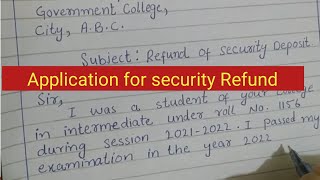 Government College,
City, A.B.C.
Subject: Refund of security Deposit
Application for security Refund
Sir,
I was a student of your College
in intermediate under roll No. 1156
during session 2021-2022. I passed my
examination in the year 2022